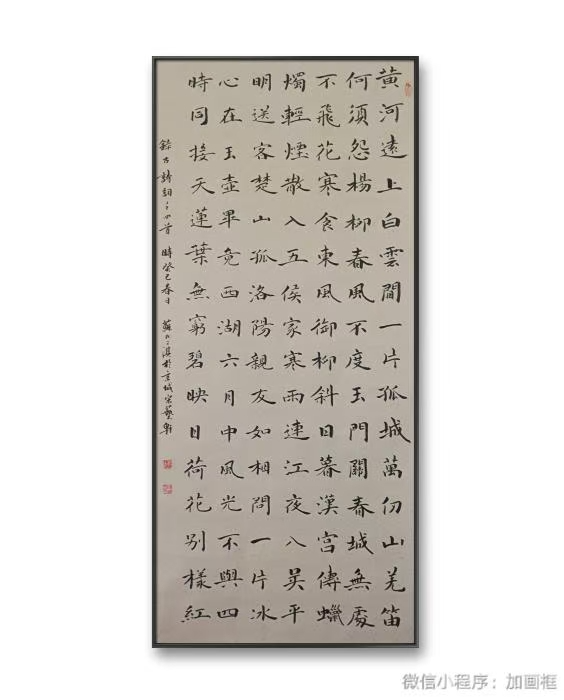 黄河遠上白雲間一片孤城萬仞山羌笛
何須怨楊柳春風不度玉門關春城無處
不飛花寒食東風御柳斜日暮漢宮傳蠟
燭輕煙散入五侯家寒雨連江夜入吴平
明送客楚山孤洛陽親友如相問一片冰
心在玉壺畢竟西湖六月中風光不與四
時同接天蓮葉無窮碧映日荷花别樣紅
錄古詩詞之四首 時癸巳春日 蘇淇於京城藝軒
微信小程序：加画框